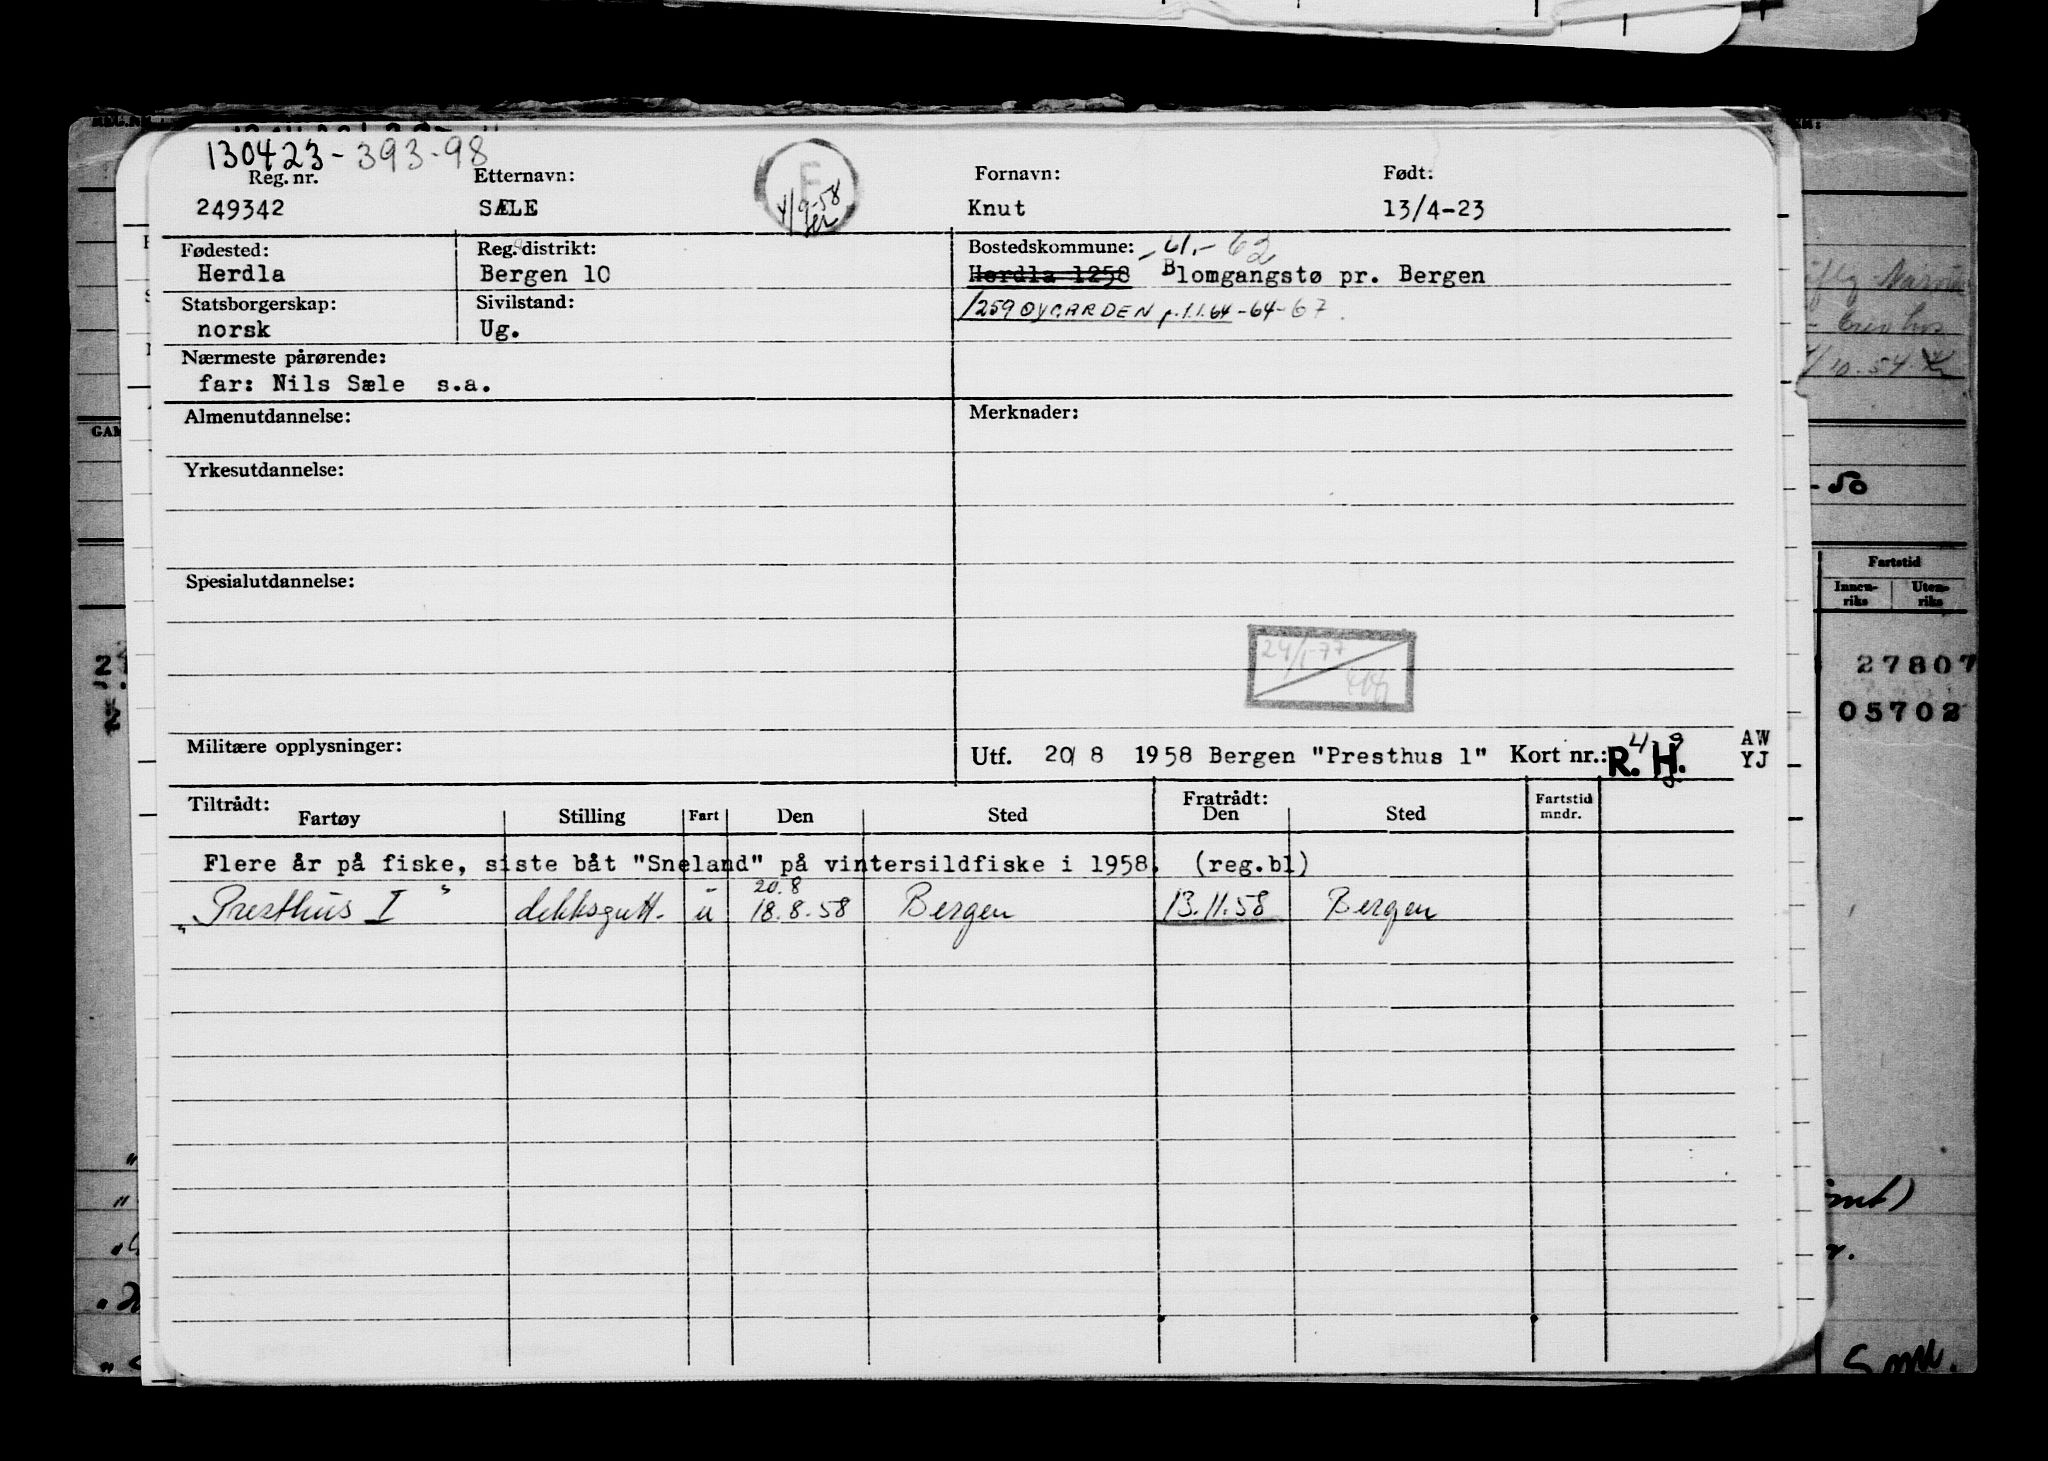 130423-393-98
Reg. nr. Etternavn: Fornavn: Født:
249342 SÆLE 4/9-58 Knut 13/4-23
Fødested: Reg. distrikt: Bostedskommune: -61.-62
Herdla Bergen 10 Herdla 1258 Blomgangstø pr. Bergen
Statsborgerskap: Sivilstand: 1259 ØYGARDEN p.1.1.64-64-67.
norsk Ug.
Nærmeste pårørende:
far: Nils Sæle s.a.
Almenutdannelse: Merknader:
Yrkesutdannelse:
Spesialutdannelse:
24/1-77
Militære opplysninger: Utf. 20/8 1958 Bergen "Presthus 1" Kort nr.: R. H. AW
YJ
Tiltrådt: Fratrådt:
Fartøy Stilling Fart Den Sted Den Sted Fartstid mndr.
Flere år på fiske, siste båt "Sneland" på vintersildfiske i 1958. (reg.bl)
20.8
"Presthus I" dekksgutt. u 18.8.58 Bergen 13.11.58 Bergen
/10.54
-50
Fartstid
Innen-riks Uten-riks
27807
05702